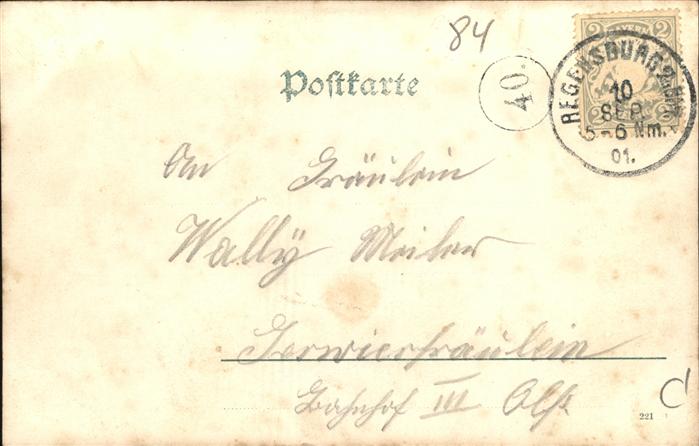 84
Postkarte
40.
2 BAYERN 2
REGENSBURG 2. BH.
10
SEP.
5-6 Nm.
01.
An Fräulein
Wally Meiler
Servierfräulein
Bahnhof III
221